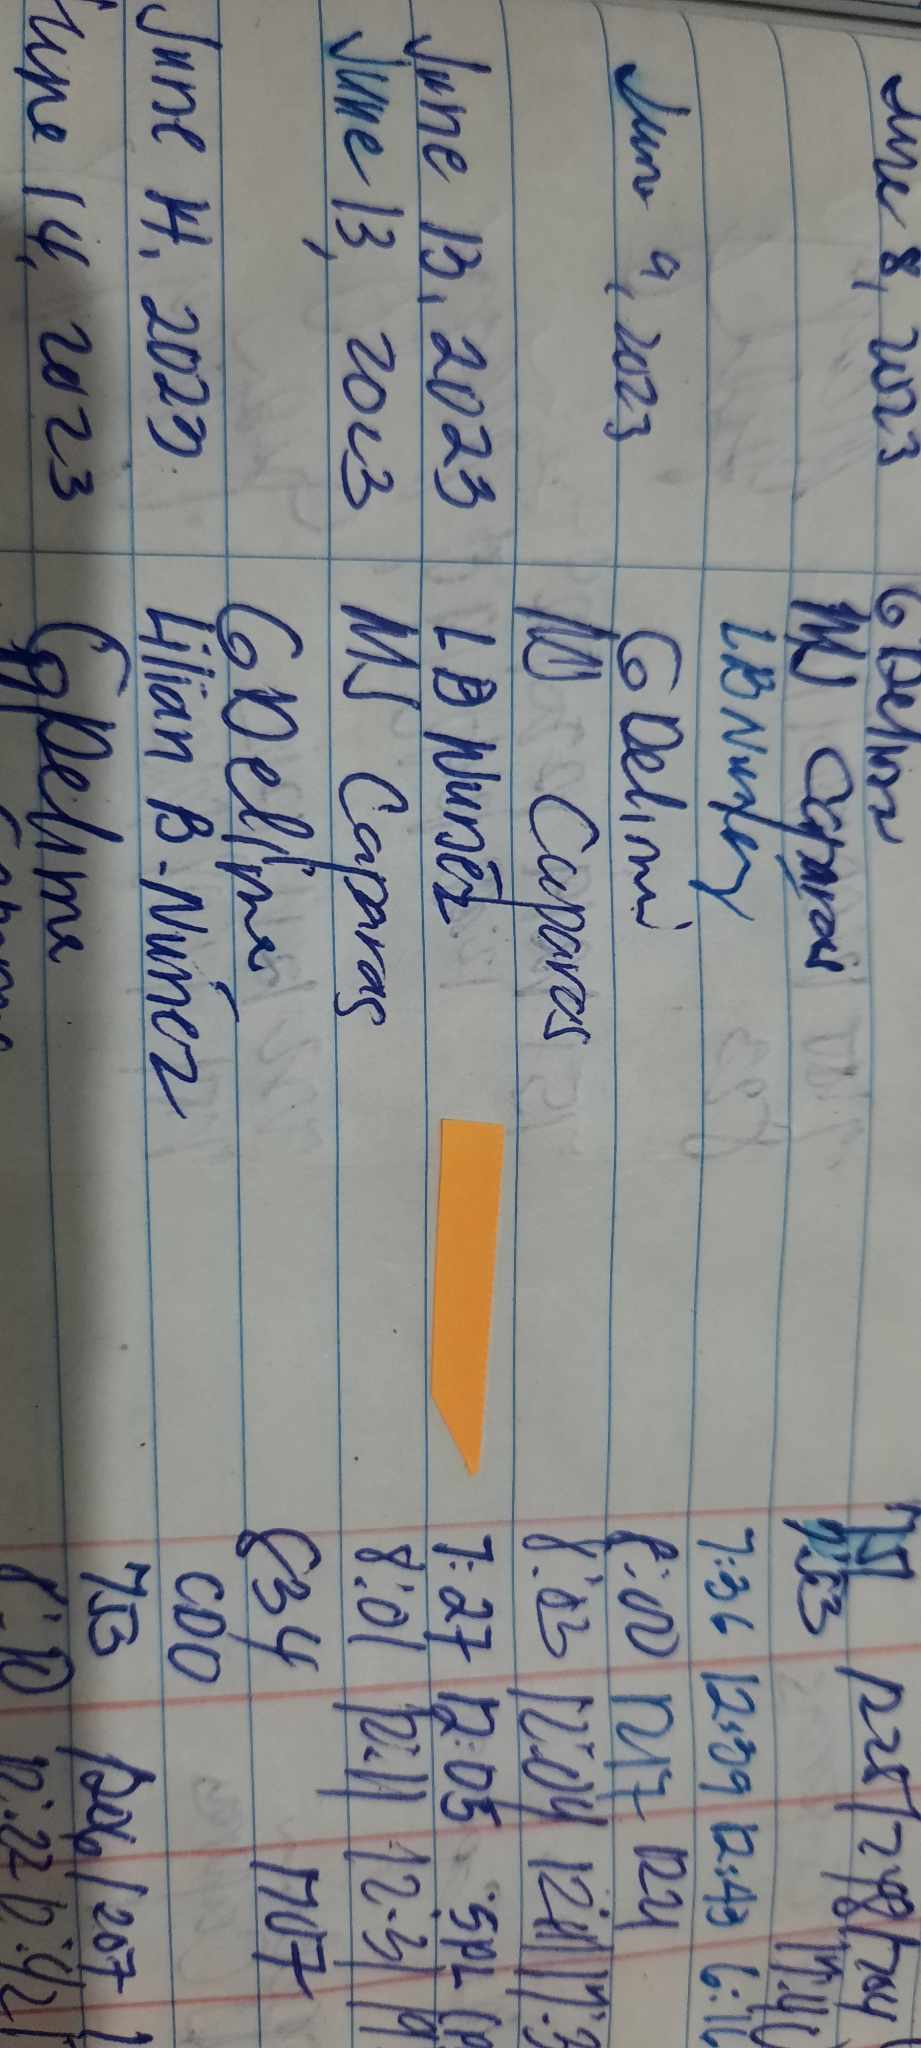 June 8, 2023 G Delima
MJ Caparas 7:53
LB Nuñez 7:36 12:39 12:43
June 9, 2023 G Delima 8:00 1217 1221
MJ Caparas 8:03 12:04 12:11
June 13, 2023 LB Nuñez 7:27 12:03 SPL
June 13, 2023 MJ Caparas 8:01 12:11 12:31
G Delima 834 1707
June 14, 2023 Lilian B. Nuñez CDO
June 14, 2023 G Delima 753 1207
12:22